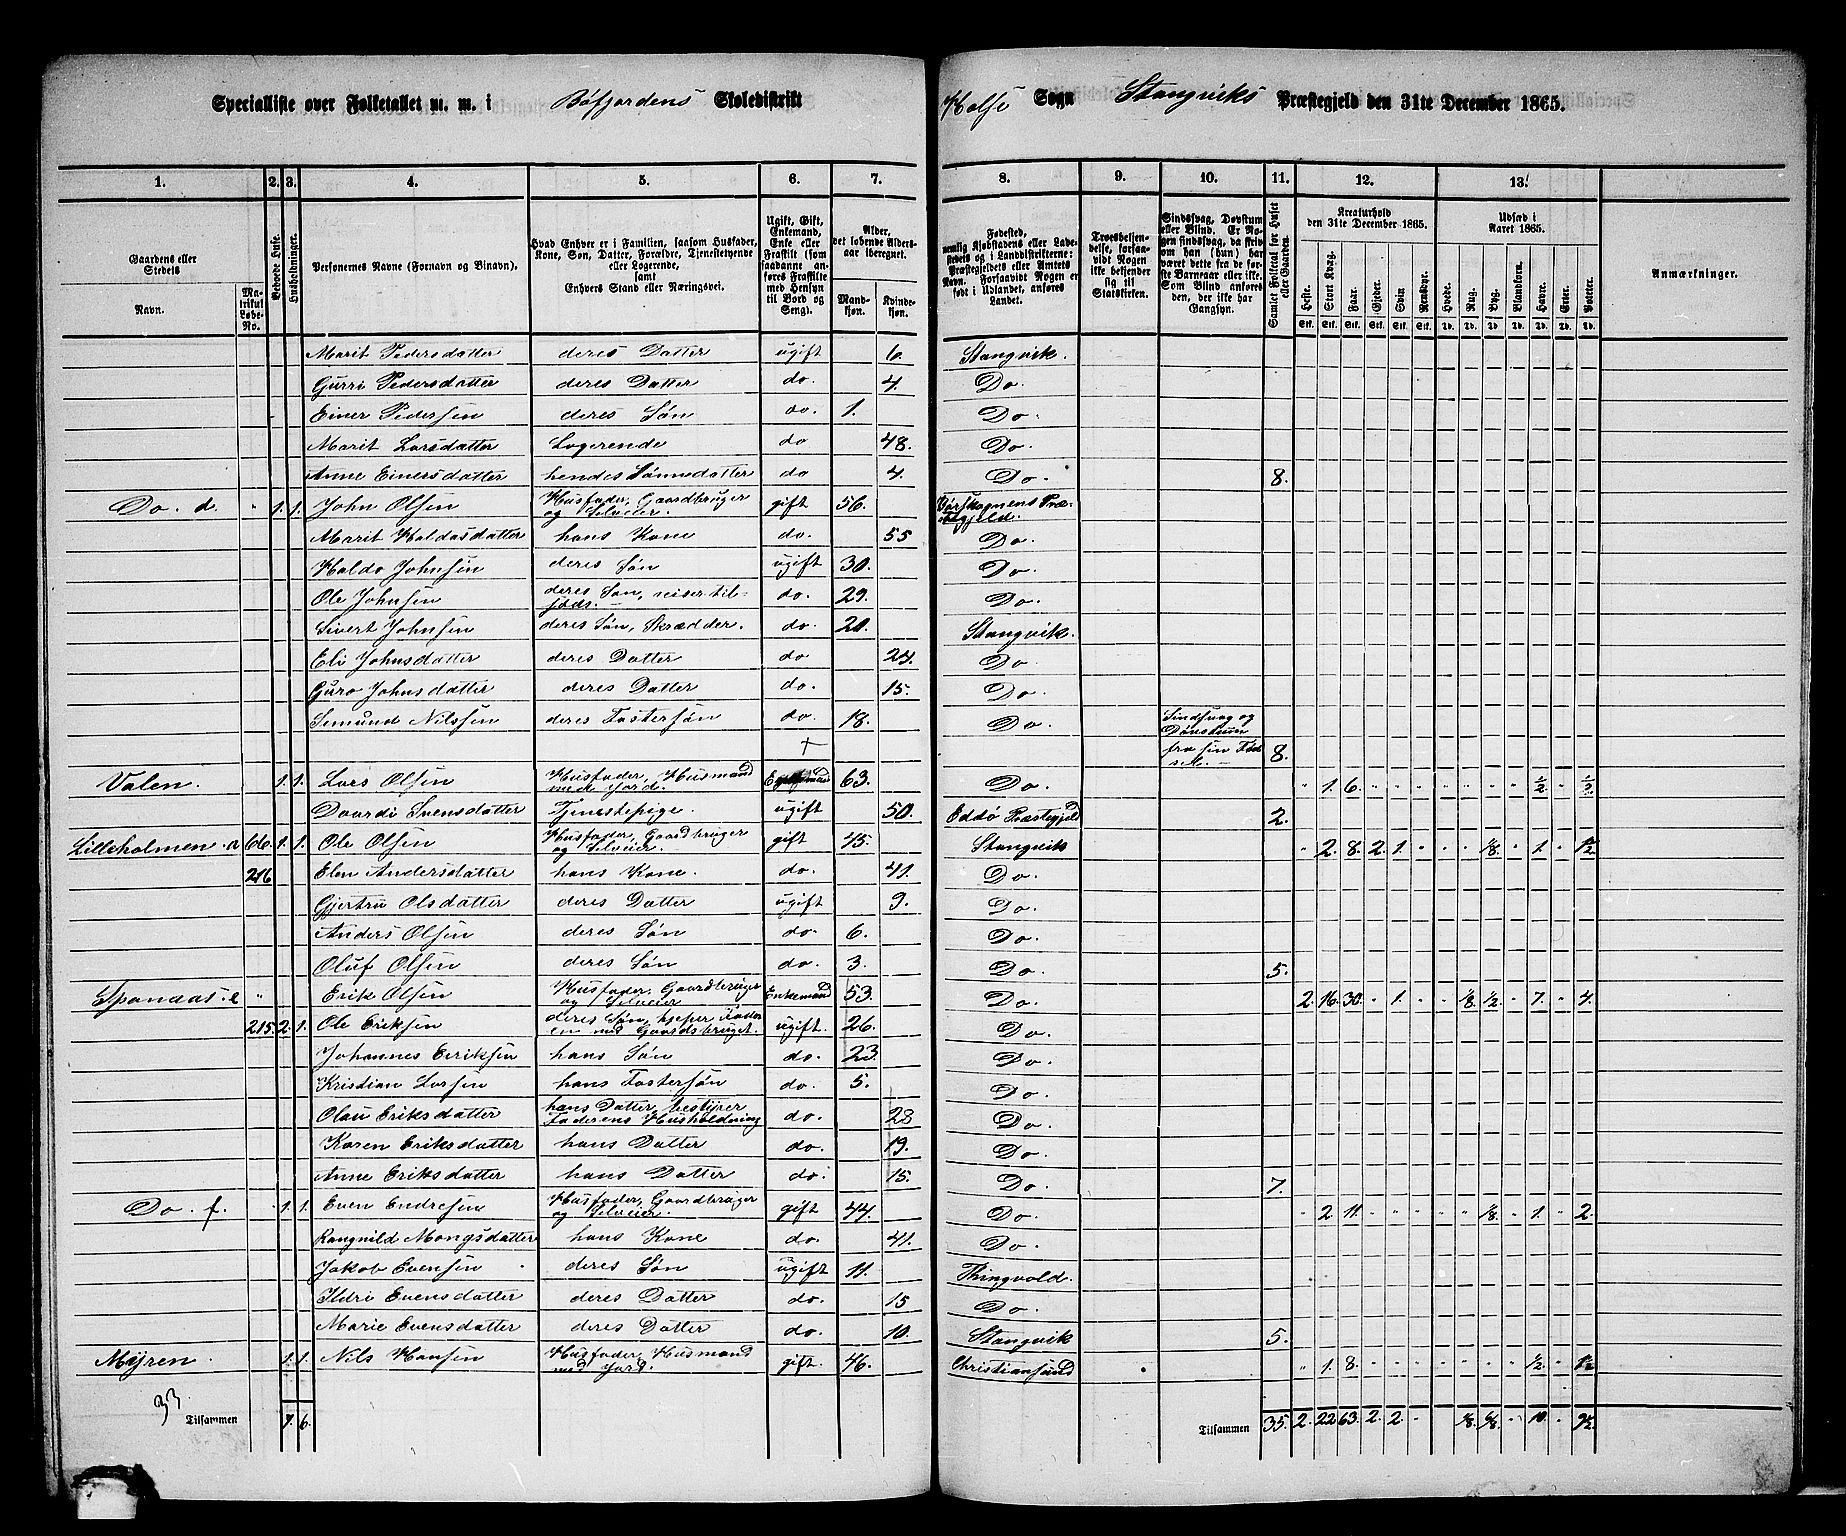 Specialliste over Folketallet m. m. i Bøfjordens Skoledistrikt Halse Sogn Stangviks Præstegjeld den 31te December 1865.
1. 2. 3. 4. 5. 6. 7. 8. 9. 10. 11. 12. 13.
Gaardens eller Stedets Navn. Matrikul Løbe-No. Beboede Huse. Husholdninger. Personernes Navne (Fornavn og Binavn). Hvad Enhver er i Familien, saasom Husfader, Kone, Søn, Datter, Forældre, Tjenestetyende eller Logerende, samt Enhvers Stand eller Næringsvei. Ugift, Gift, Enkemand, Enke eller Fraskilt (som saadanne anføres Fraskilte med Hensyn til Bord og Seng). Alder, det løbende Alders-aar iberegnet. Mandkjøn. Kvindekjøn.
Fødested, nemlig Kjøbstadens eller Ladestedets og i Landdistrikterne: Præstegjeldets eller Amtets Navn. Forsaavidt Nogen er født i Udlandet, anføres Landet. Troesbekjendelse, forsaavidt Nogen ikke bekjender sig til Statskirken. Sindssvag, Døvstum eller Blind. Er Nogen sindssvag, da skriv om han (hun) har været dette fra de første Barneaar eller ikke. Som Blind anføres den, der ikke har Gangsyn. Samlet Folketal for Huset eller Gaarden. Kreaturhold den 31te December 1865. Udsæd i Aaret 1865. Anmærkninger.
Heste. Stort Kvæg. Faar. Gjeder. Svin Rensdyr. Hvede. Rug. Byg. Blandkorn. Havre. Erter. Poteter.
Stk. Stk. Stk. Stk. Stk. Stk. Td. Td. Td. Td. Td. Td. Td.
Marit Pedersdatter deres Datter ugift 6. Stangvik.
Gurri Pedersdatter deres Datter do. 4. Do.
Einer Pedersen deres Søn do. 1. Do.
Marit Larsdatter Logerende do 48. Do.
Anne Einersdatter hendes Sønnedatter do 4. Do. 8.
Do. d. " 1. 1. John Olsen Husfader, Gaardbruger og Selveier. gift 56.
Marit Haldosdatter hans Kone do. 55 Do.
Haldo Johnsen deres Søn ugift 30. Do.
Ole Johnsen deres Søn, reiser til- do. 29. Do.
Sivert Johnsen deres Søn, Skrædder. do. 20. Stangvik.
Eli Johnsdatter deres Datter do 24. Do.
Guro Johnsdatter deres Datter do. 15. Do.
Semund Nilssen deres Fostersøn do. 18. Do. Sindsvag og Døvstum
+ fra sin Fødsel. 8.
Valen. 1. 1. Lars Olsen Husfader, Husmand med Jord. 63. Do. " 1. 6. " " " " " " " 1/2 " 1/2
Daardi Svensdatter Tjenestepige. ugift 50. Eddø Præstegjeld 2.
Lilleholmen. a 66. 1. 1. Ole Olsen Husfader, Gaardbruger og Selveier. gift 45. Stangvik " 2. 8. 2. 1. " " " 1/8 " 1. " 1 1/2
216 Elen Andersdatter hans Kone. do. 41. Do.
Gjertru Olsdatter deres Datter ugift 9. Do.
Anders Olsen deres Søn do. 6. Do.
Oluf Olsen deres Søn do. 3. Do. 5.
Spandaas. e " Erik Olsen Husfader, Gaardbruger og Selveier Enkemand 53. Do. 2. 16. 30. " 1. " " 1/8. 1/2. " 7. " 4.
215. 2. 1. Ole Eriksen deres Søn, hjelper Faderen med Gaardsbruget. ugift. 26. Do.
Johannes Eriksen hans Søn do. 23. Do.
Kristian Larsen hans Fostersøn do. 5. Do.
Olau Eriksdatter hans Datter, bestyrer Faderens Husholdning do. 28 Do.
Karen Eriksdatter hans Datter do. 19. Do.
Anne Eriksdatter hans Datter do. 15. Do. 7.
Do. f. 1. 1. Even Endresen Husfader, Gaardbruger og Selveier. gift 44. Do. " 2. 11. " " " " " 1/8. " 1. " 2.
Rangnild Mangsdatter hans Kone do. 41. Do.
Jakob Evensen deres Søn ugift 11. Thingvold.
Ildri Evensdatter deres Datter do. 15 Do.
Marie Evensdatter deres Datter do. 10. Stangvik 5.
Myren. 1. 1. Nils Hansen Husfader, Husmand med Jord. gift 46. Christiansund " 1. 8. " " " " " " " 1/2 " 1 1/2
33
Tilsammen 7. 6. Tilsammen 35. 2. 22 63. 2. 2. " " 1/8. 6/8. " 10. " 9 1/2